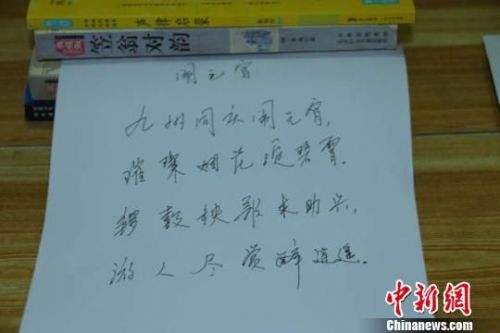 声律启蒙
笠翁对韵
闹元宵
九州同庆闹元宵，
璀璨烟花须碧霄。
锣鼓秧歌来助兴，
游人尽赏醉逍遥。
中新网
Chinanews.com